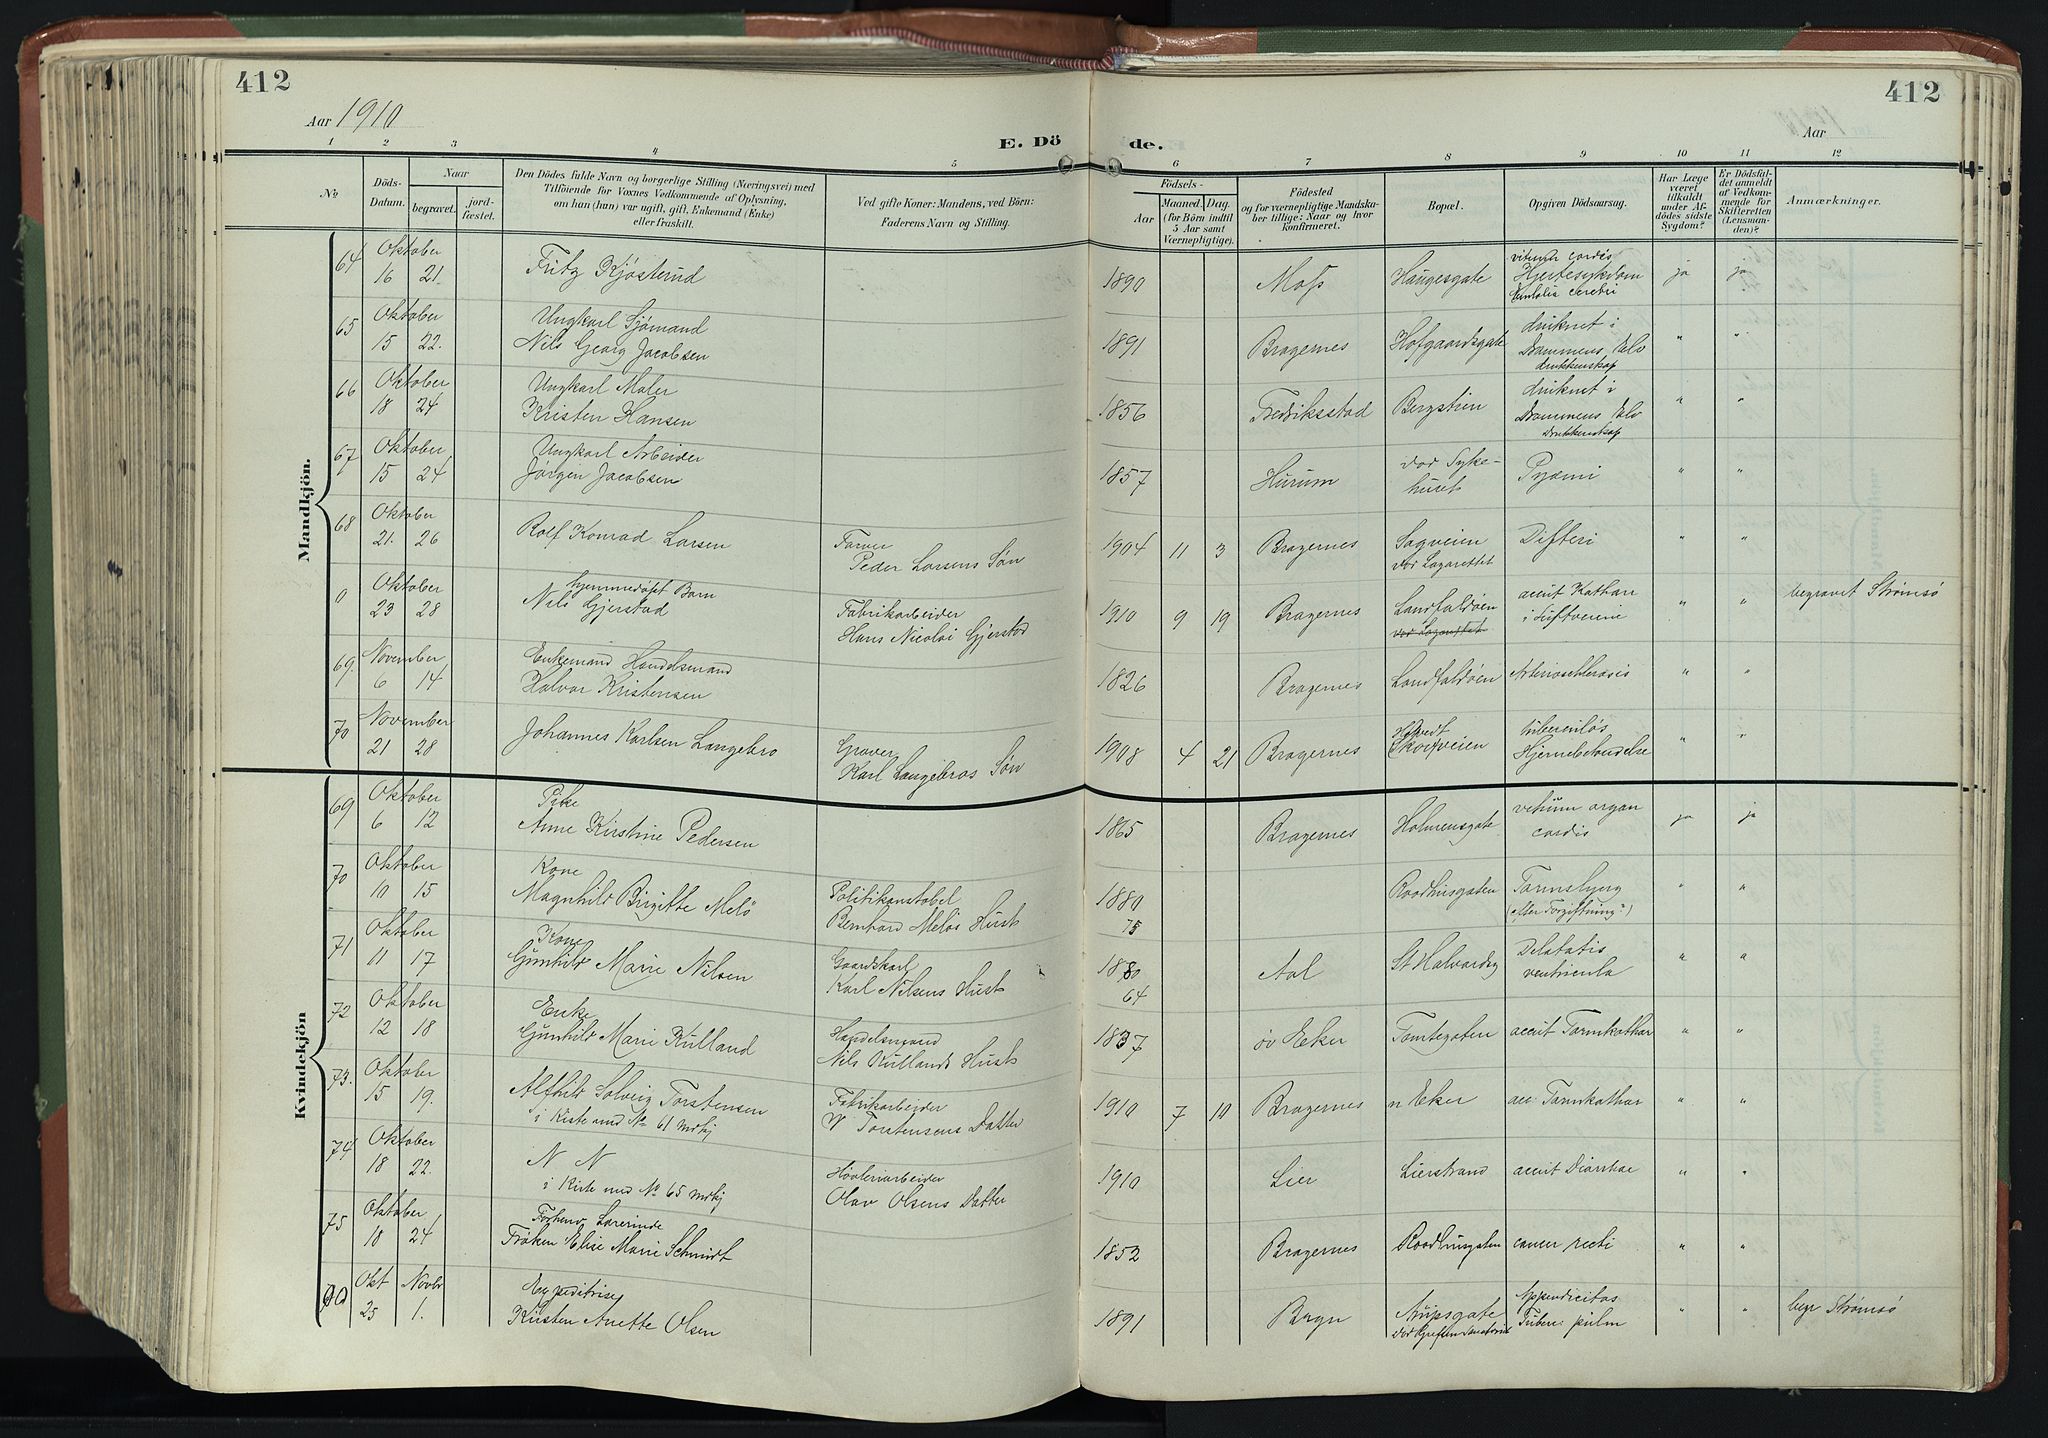 412
412
Aar 1910
E. Dö
de.
Aar
1 2 3 4 5 6 7 8 9 10 11 12
No
Döds-
Datum.
Naar
begravet.
jord-
fæstet.
Den Dödes fulde Navn og borgerlige Stilling (Næringsvei) med
Tilföiende for Voxnes Vedkommende af Oplysning,
om han (hun) var ugift, gift, Enkemand (Enke)
eller fraskilt.
Ved gifte Koner: Mandens, ved Börn:
Faderens Navn og Stilling.
Födsels-
Aar
Maaned. Dag.
(for Börn indtil
5 Aar samt
Værnepligtige).
Födested
og for værnepligtige Mandska-
ber tillige: Naar og hvor
konfirmeret.
Bopæl.
Opgiven Dödsaarsag.
Har Læge
været
tilkaldt
under Af-
dödes sidste
Sygdom?
Er Dödsfal-
det anmeldt
af Vedkom-
mende for
Skifteretten
(Lensman-
den)?
Anmærkninger.
Mandkjön.
64 Oktober
16 21. Fritz Kjøsterud 1890 Moss Haugesgate
Hjertesykdom ja ja
65 Oktober Ungkarl Sjømand
15 22. Nils Georg Jacobsen 1891 Bragernes Hofgaardsgate druknet i
Drammens Elv " "
drukkenskap
66 Oktober Ungkarl Maler
18 24 Kristen Hansen 1856 Fredriksstad Bergstien druknet i
Drammens Elv " "
Drukkenskap
67 Oktober Ungkarl Arbeider
15 24 Jørgen Jacobsen 1857 Hurum død Syke-
huset Pyæmi " "
68 Oktober
21. 26 Rolf Konrad Larsen Farver
Peder Larsens Søn 1904 11 3 Bragernes Sagveien
død Lazarettet Difteri " "
0 Oktober hjemmedøpt Barn
23 28 Nils Gjerstad Fabrikarbeider
Hans Nicolai Gjerstad 1910 9 19 Bragernes Landfaldøen
død Lazarettet acut Katharr
i Luftveiene " " begravet Strømsø
69. November Enkemand Handelsmand
6 14 Halvor Kristensen 1826 Bragernes Landfaldøen Arteriosclerosis " "
70 November
21 28 Johannes Karlsen Langebro Graver
Karl Langebros Søn 1908 4 21 Bragernes
tuberculøs
Hjernebetændelse " "
Kvindekjön
69 Oktober Pike
6 12 Anne Kirstine Pedersen 1865 Bragernes Holmensgate vitium organ
cordis ja ja
70 Oktober Kone
10 15 Magnhild Birgitte Melø Politikonstabel
Bernhard Meløs Hust 1880 Raadhusgaten
(efter Forgiftning?) " "
71 Oktober Kone 75
11 17 Gunhild Marie Nilsen Gaardskarl
Karl Nilsens Hust 1880 Aal St Halvardsg Dilatatio
ventricula " "
72 Oktober Enke 64
12 18 Gunhild Marie Kulland Handelsmand
Nils Kullands Hust 1837 øv Eker Tomtegaten acut Tarmkathar " "
73. Oktober
15 19. Alfhild Solveig Torstensen
i Kiste med No 61 mdkj Fabrikarbeider
V Torstensens Datter 1910 7 10 Bragernes n Eker acu Tarmkathar " "
74 Oktober
18 22. N N
i Kiste med No 65 mdkj Høvleriarbeider
Olav Olsens Datter 1910 Lier Lierstrand acut Diarrhoe " "
75 Oktober Forhenv. Lærerinde
18 24 Frøken Elise Marie Schmidt 1852 Bragernes Raadhusgaten cancer recti " "
Okt Novbr
25 1. Expeditrise
Kirsten Anette Olsen 1891 Brgn Arupsgate
Appendicitas
Tuberc: pulm " " begr Strømsø